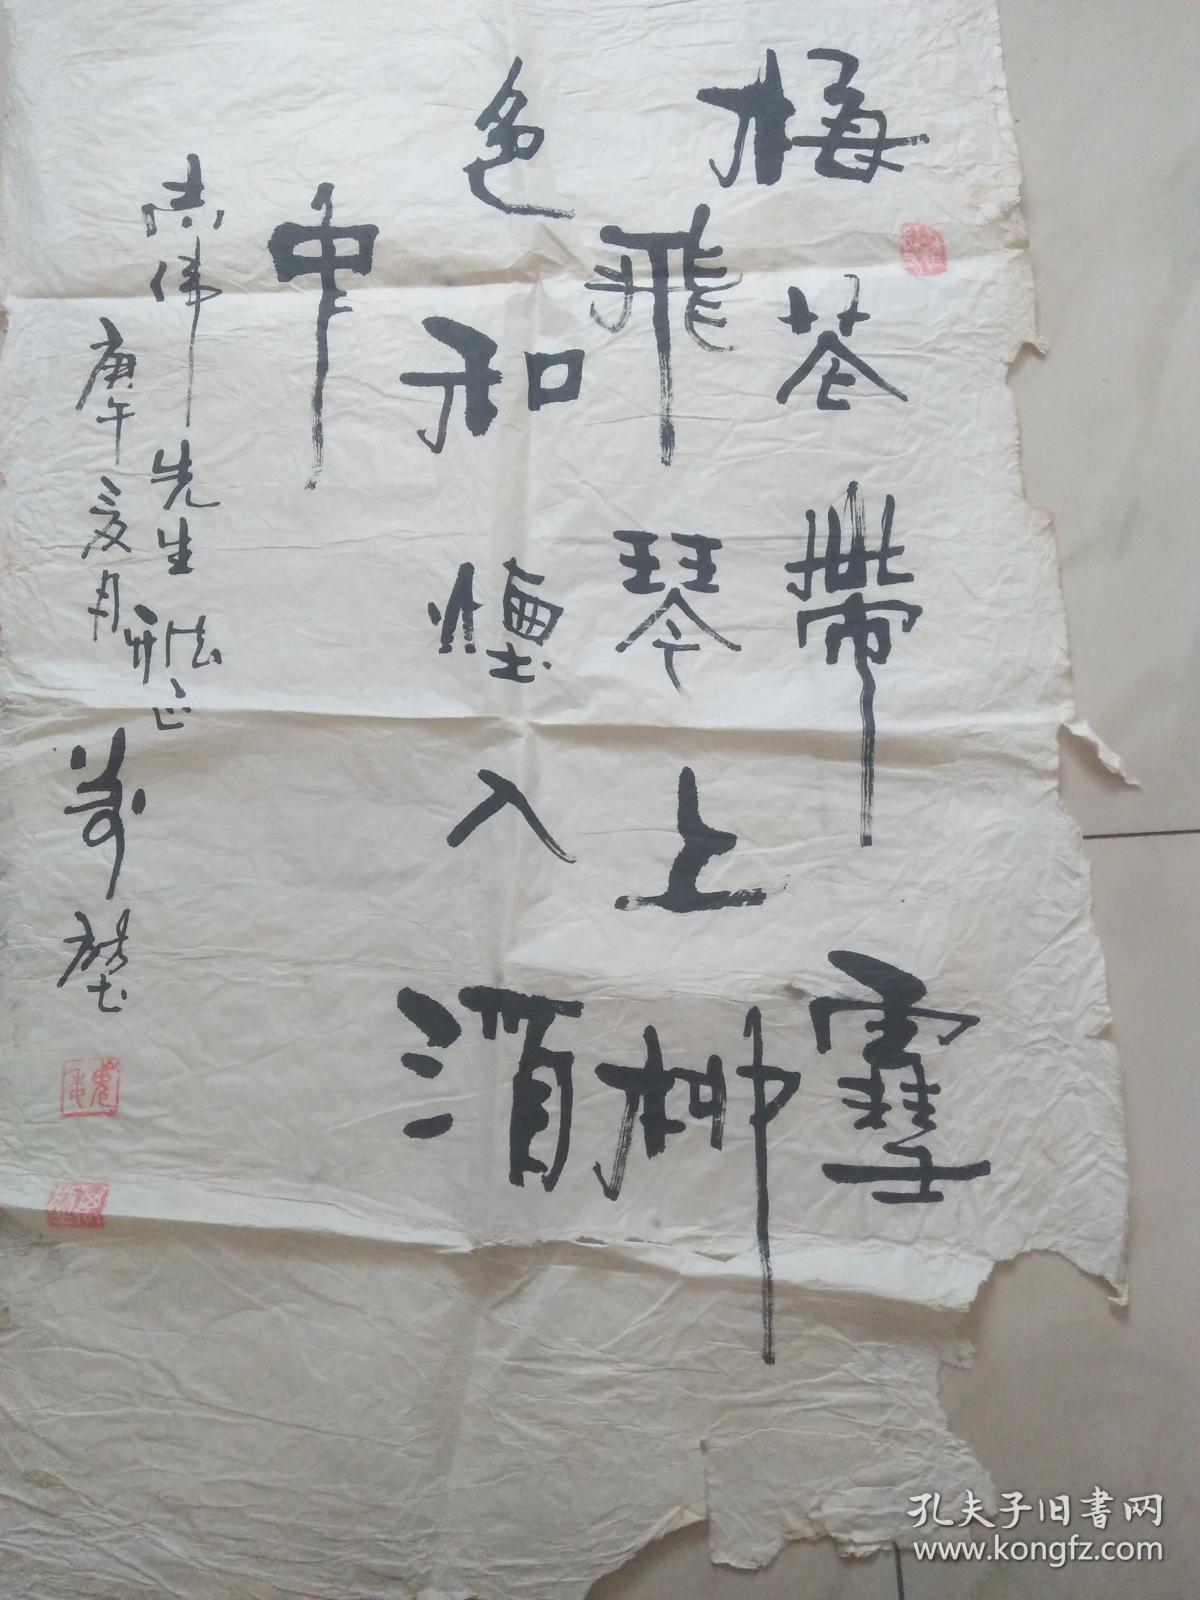 梅花帶雪
飛琴上柳
色和煙入酒
中
志偉先生法正
庚午夏月
孔夫子旧书网
www.kongfz.com